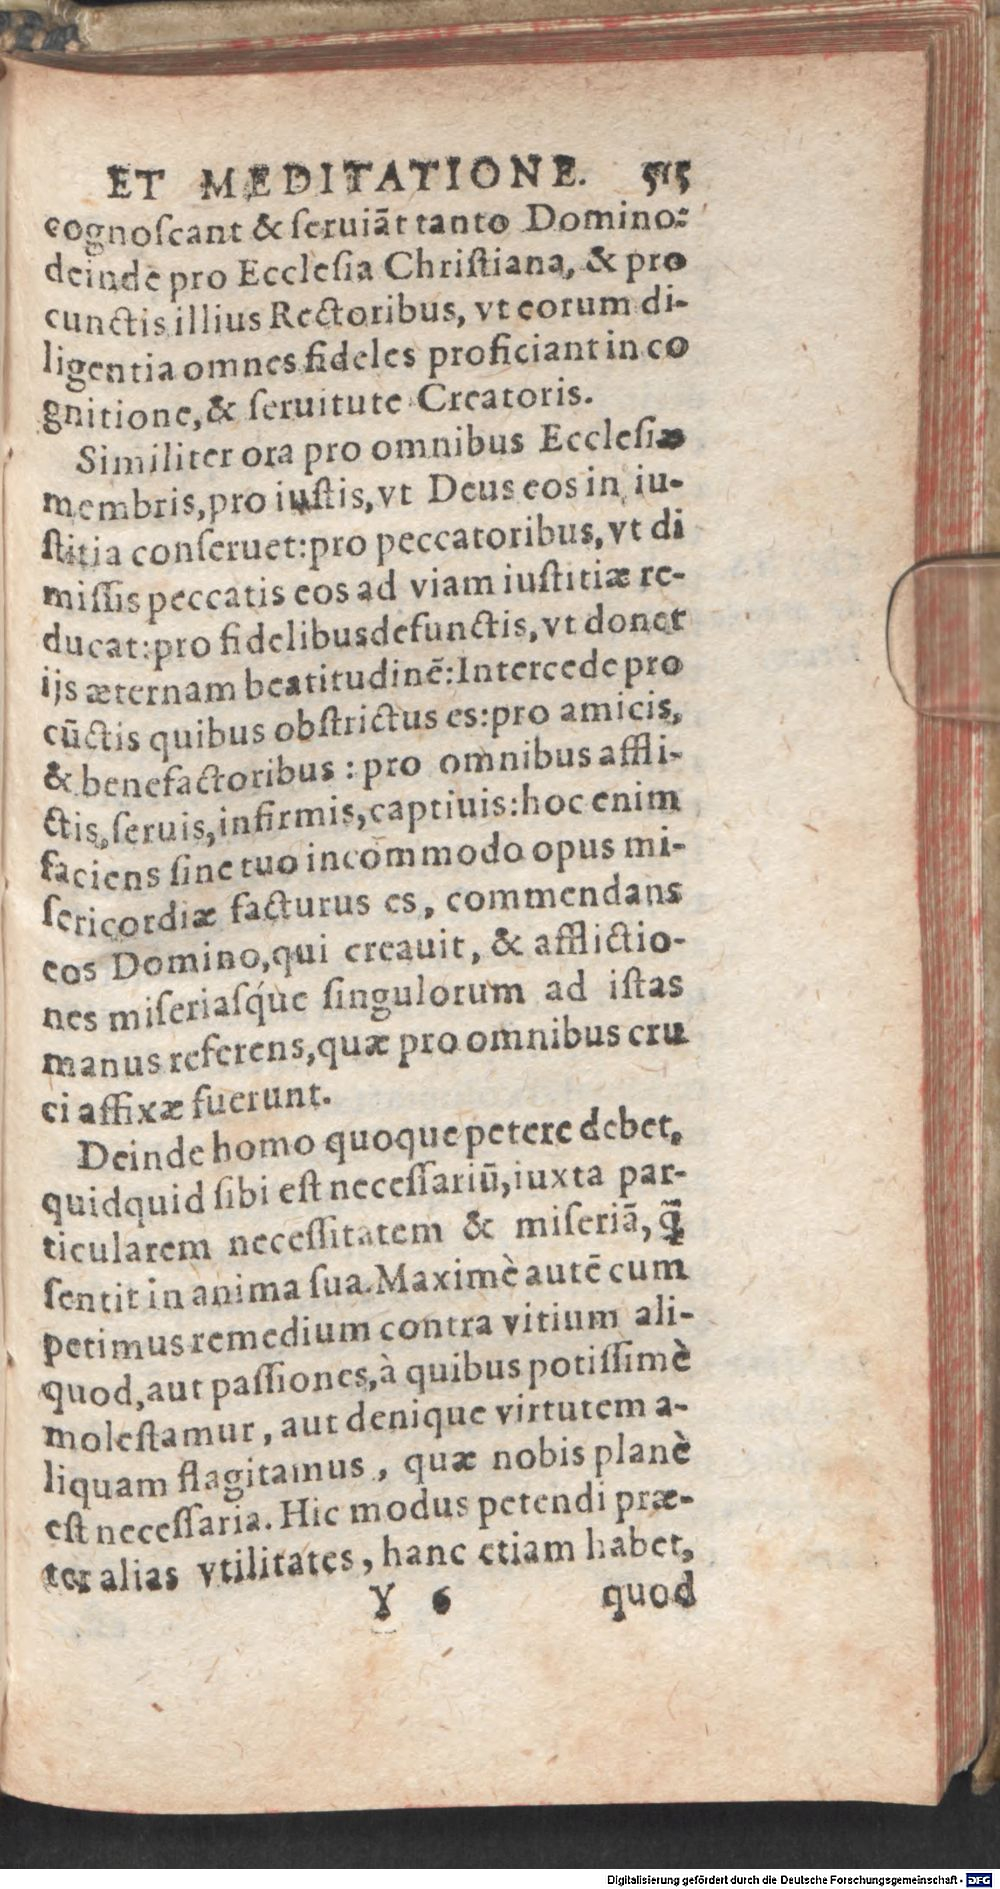 ET MEDITATIONE. 515
cognoſcant & ſeruiãt tanto Domino:
deinde pro Eccleſia Chriſtiana, & pro
cunctis illius Rectoribus, vt eorum di-
ligentia omnes fideles proficiant in co
gnitione, & ſeruitute Creatoris.
Similiter ora pro omnibus Eccleſiæ
membris, pro iuſtis, vt Deus eos in iu-
ſtitia conſeruet: pro peccatoribus, vt di
miſſis peccatis eos ad viam iuſtitiæ re-
ducat: pro fidelibus defunctis, vt donet
ijs æternam beatitudinẽ: Intercede pro
cũctis quibus obſtrictus es: pro amicis,
& benefactoribus : pro omnibus affli-
ctis, ſeruis, infirmis, captiuis: hoc enim
faciens ſine tuo incommodo opus mi-
ſericordiæ facturus es, commendans
eos Domino, qui creauit, & afflictio-
nes miſeriaſq́ue ſingulorum ad iſtas
manus referens, quæ pro omnibus cru
ci affixæ fuerunt.
Deinde homo quoque petere debet,
quidquid ſibi eſt neceſſariũ, iuxta par-
ticularem neceſſitatem & miſeriã, q̃
ſentit in anima ſua. Maximè autẽ cum
petimus remedium contra vitium ali-
quod, aut paſſiones, à quibus potiſſimè
moleſtamur, aut denique virtutem a-
liquam flagitamus, quæ nobis planè
eſt neceſſaria. Hic modus petendi præ-
ter alias vtilitates, hanc etiam habet,
Y 6 quod
Digitalisierung gefördert durch die Deutsche Forschungsgemeinschaft - DFG